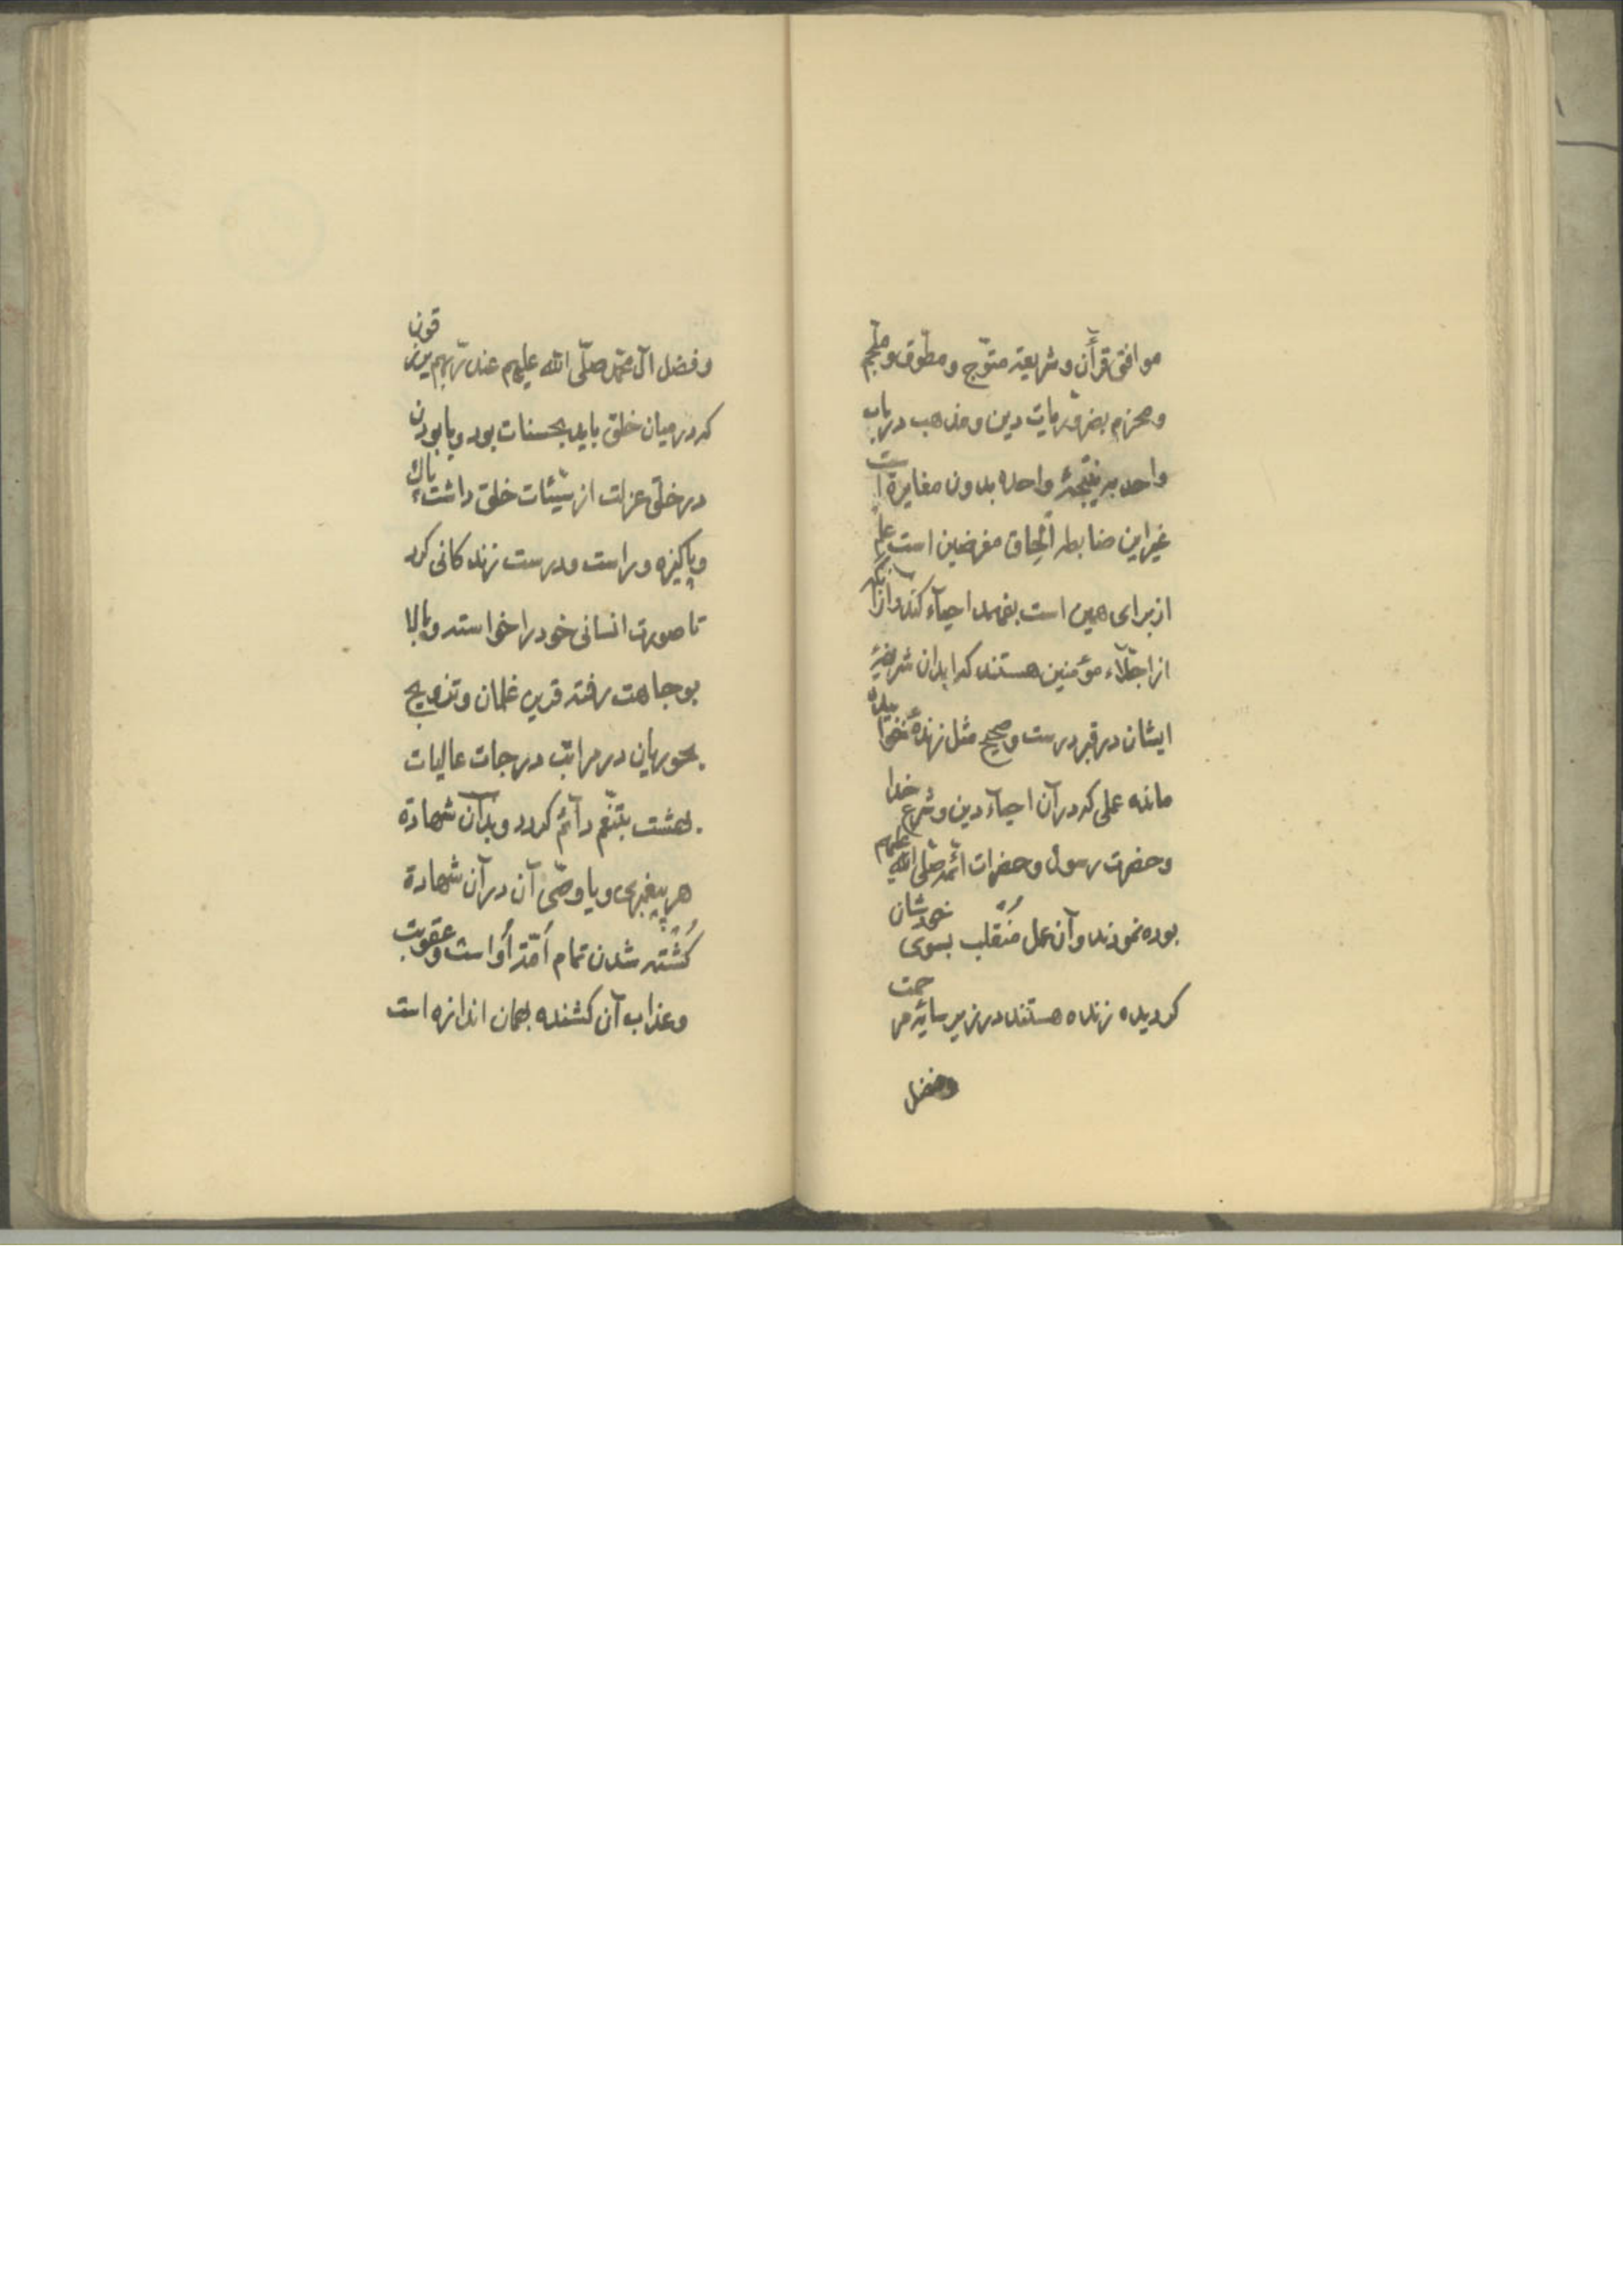 موافق قرآن و شریعة متوّج و مطوّق و ملجم
و محزم بضروریات دین و مذهب در باب
واحد بر نتیجهٔ واحده بدون مغایرة است
غیر این ضابطه الحاق مغرضین است علم
از برای همین است بفهمد احیآء کند و آزانکه
از اجلّاء مؤمنین هستند که ابدان شریفهٔ
ایشان در قبر درست و صحیح مثل زندهٔ خوابیده
مانده عملی که در آن احیآء دین و شرع خدا
و حضرت رسول و حضرات ائمّه صلّی الله علیهم
بوده نمودند و آن عمل مُنقلب بسوی خودشان
کردیده زنده هستند در زیر سایهٔ مرحمت
و فضل
و فضل آل محمّد صلّی الله علیهم عند ربّهم یرزقون
که در میان خلق باید بحسنات بود و یا بودن
در خلق عزلت از سیّئات خلق داشت پاک
و پاکیزه و راست و درست زندکانی کرد
تا صورت انسانی خود را خواسته و بالا
بوجاهت رفته قرین غلمان و تزویج
بحوریان در مراتب درجات عالیات
بهشت بتنعّم دآئم کردد و بدآن شهادة
هر پیغمبری و یا وصّی آن در آن شهادة
کُشته شدن تمام اُمّة اُو است و عقوبت
و عذاب آن کشنده بهمان اندازه است